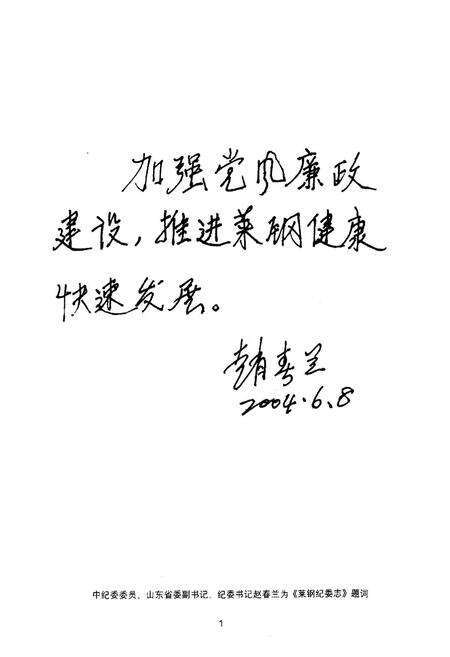 加强党风廉政
建设，推进莱钢健康
快速发展。
赵春兰
2004.6.8
中纪委委员、山东省委副书记、纪委书记赵春兰为《莱钢纪委志》题词
1